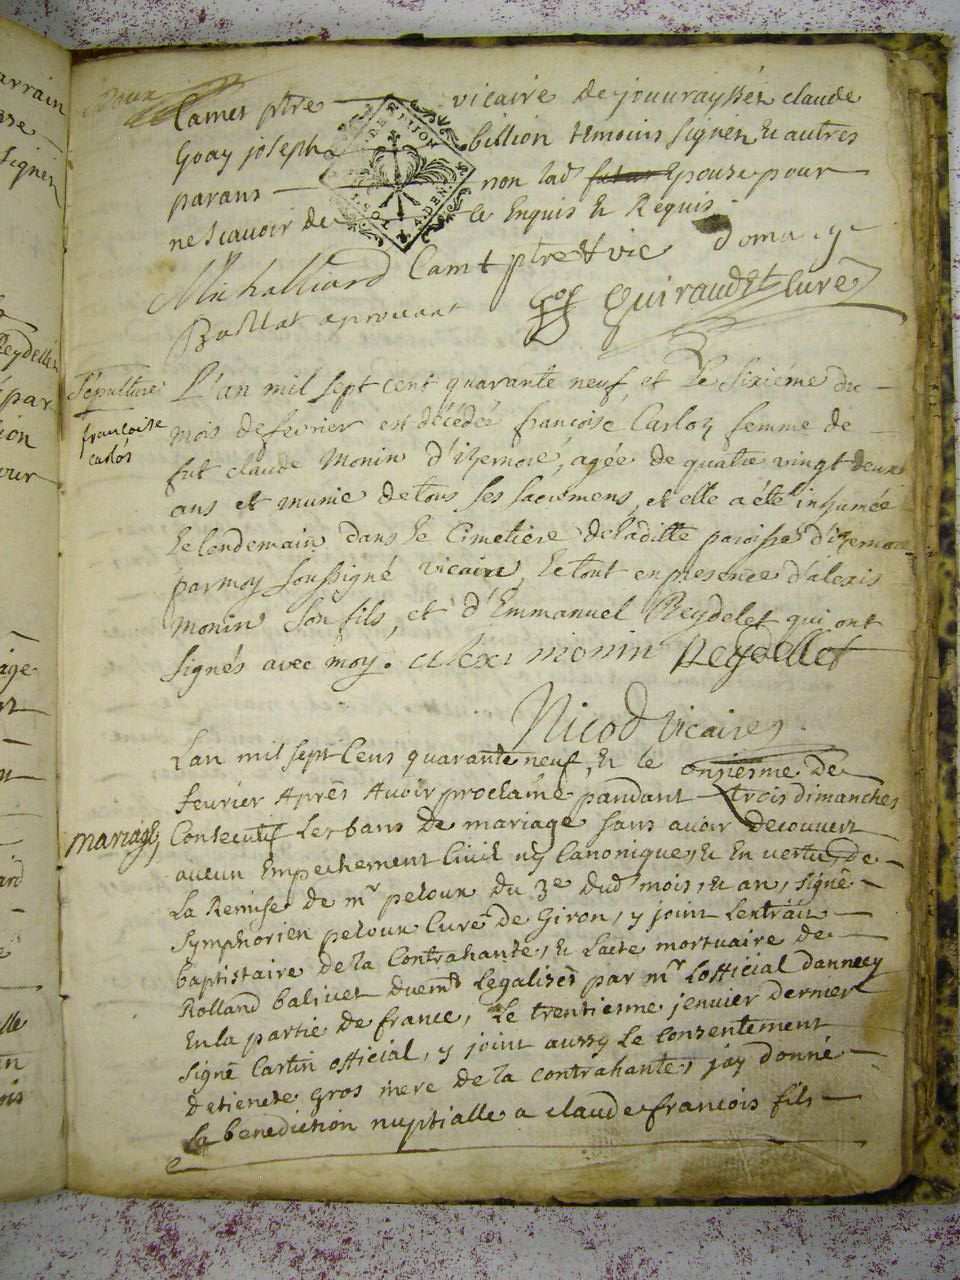 Camet ptre vicaire de jouuraysset claude
Goay joseph billion temoins signén & autres
parans non lad futur Epouse pour
ne scavoir de ce Enquis & Requis
Camet ptre & vic
Baillat aprouvant Guiraudet Curé
Sépulture
françoise
carlos
L'an mil sept cent quarante neuf et le sixiéme du
mois de fevrier est décédée françoise Carloz femme de
fut claude Monin d'izernore, agée de quatre vingt deux
ans et munie de tous ses sacremens, et elle a été inhumée
le lendemain dans le Cimetiere de laditte paroisse d'izernore
par moy soussigné vicaire, le tout en presence d'alexis
monin son fils, et d'Emmanuel Reydelet qui ont
signés avec moy. alexi monin Reydellet
Nicod vicaire
mariage
Lan mil sept Cens quarante neuf, & le onsiesme de
feurier Apres Avoir proclamé pandant trois dimanches
Consecutif Les bans de mariage sans avoir decouvert
aucun Empechement Civil ny Canonique, & En vertu de
La Remise de mr peloux du 3e dud mois, & an, signé
symphorien peloux Curé de Giron, y joint Lextrait
baptistaire de la Contrahante, & Lacte mortuaire de
Rolland balivet duemt Legalisés par mr Lofficial dannecy
En la partie de france, Le trentiesme jenvier dernier
signé Cartin official, y joint aussy Le Consentement
detienete Gros mere de la contrahante, jay donné
La benediction nuptialle a claude françois fils